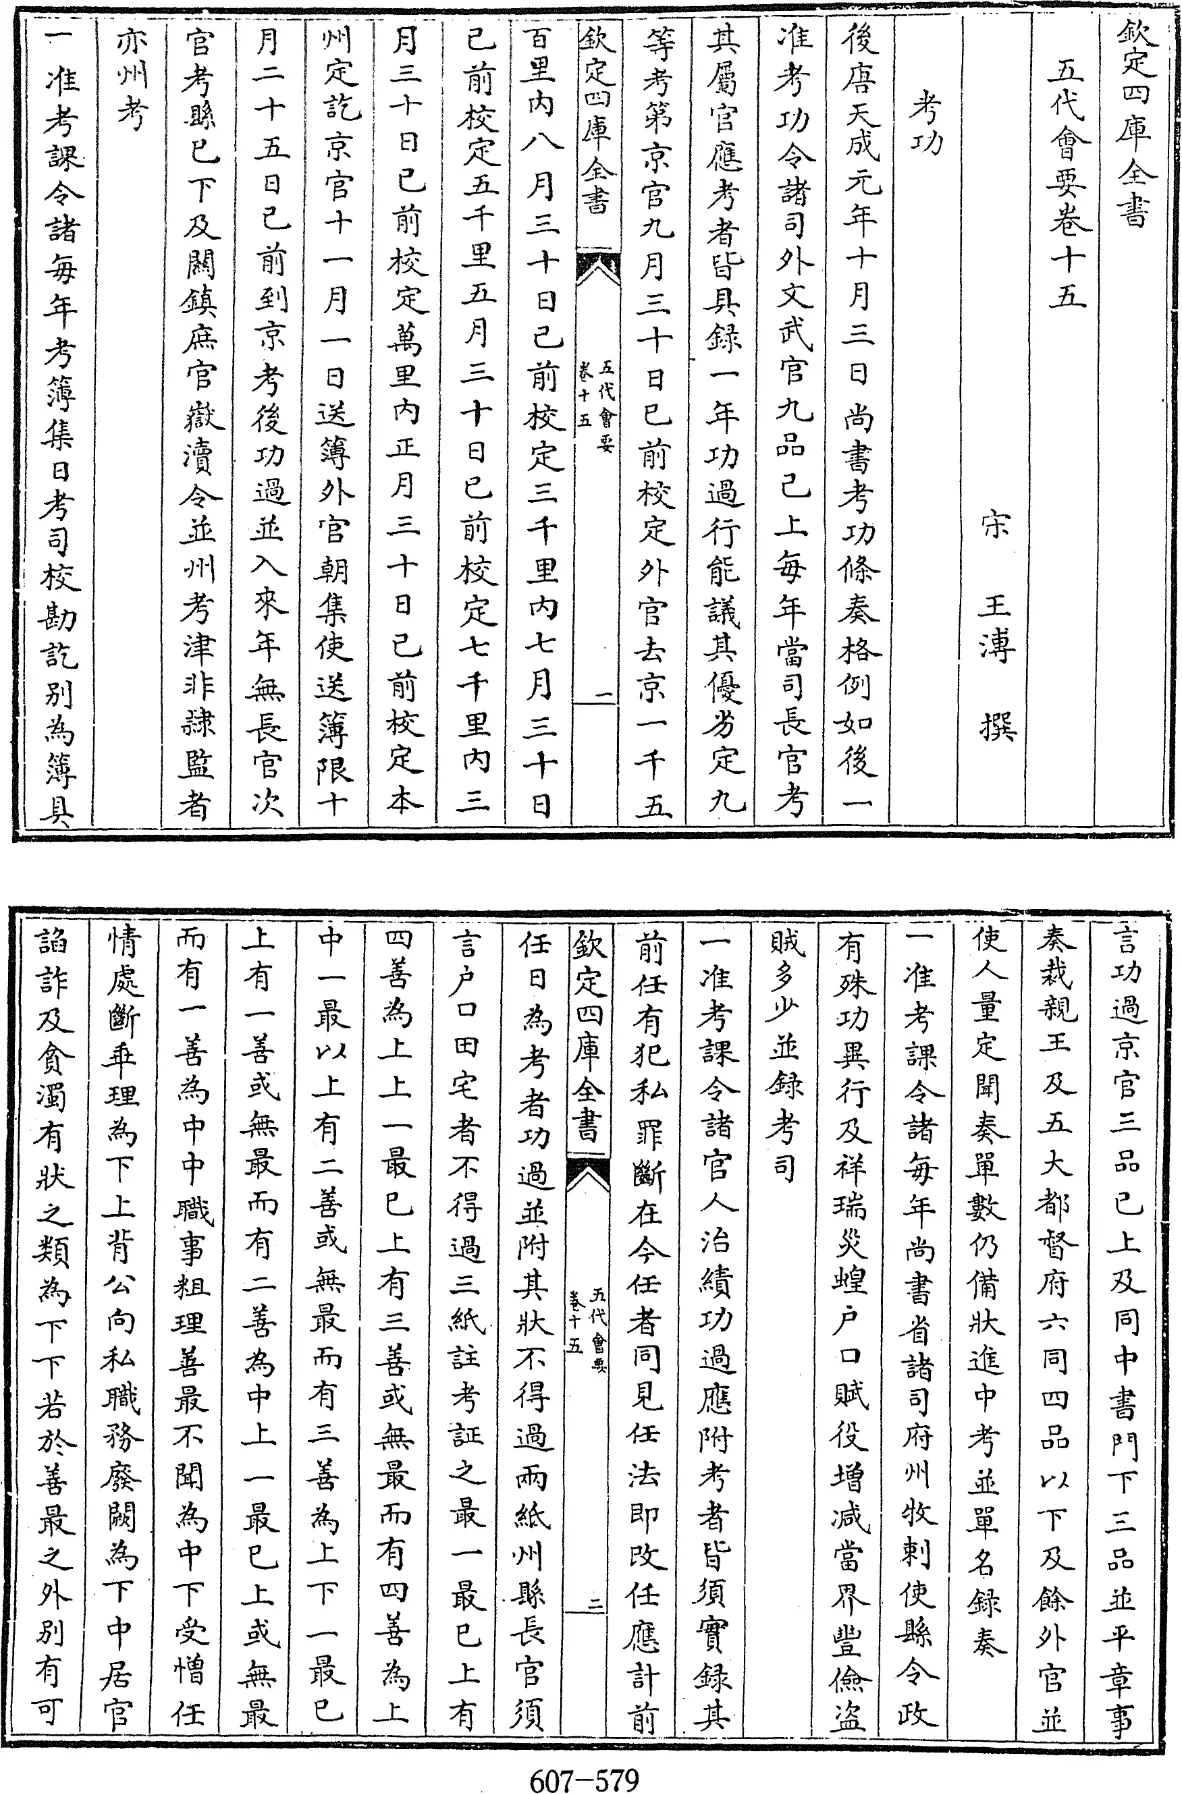 欽定四庫全書
五代會要卷十五
宋 王溥 撰
考功
後唐天成元年十月三日尚書考功條奏格例如後一
准考功令諸司外文武官九品已上每年當司長官考
其屬官應考者皆具録一年功過行能議其優劣定九
等考第京官九月三十日已前校定外官去京一千五
欽定四庫全書
五代會要
卷十五
一
百里内八月三十日已前校定三千里内七月三十日
已前校定五千里五月三十日已前校定七千里内三
月三十日已前校定萬里内正月三十日已前校定本
州定訖京官十一月一日送簿外官朝集使送簿限十
月二十五日已前到京考後功過並入來年無長官次
官考縣已下及關鎮庶官嶽瀆令並州考津非隷監者
亦州考
一准考課令諸毎年考簿集日考司校勘訖别為簿具
言功過京官三品已上及同中書門下三品並平章事
奏裁親王及五大都督府六同四品以下及餘外官並
使人量定聞奏單數仍備狀進中考並單名録奏
一准考課令諸毎年尚書省諸司府州牧刺使縣令政
有殊功異行及祥瑞災蝗户口賦役增减當界豐儉盜
賊多少並録考司
一准考課令諸官人治績功過應附考者皆須實録其
前任有犯私罪斷在今任者同見任法即改任應計前
欽定四庫全書
五代會要
卷十五
二
任日為考者功過並附其狀不得過兩紙州縣長官須
言户口田宅者不得過三紙註考証之最一最已上有
四善為上上一最已上有三善或無最而有四善為上
中一最以上有二善或無最而有三善為上下一最已
上有一善或無最而有二善為中上一最已上或無最
而有一善為中中職事粗理善最不聞為中下受憎任
情處斷乖理為下上背公向私職務廢闕為下中居官
諂詐及貪濁有狀之類為下下若於善最之外别有可
607-579